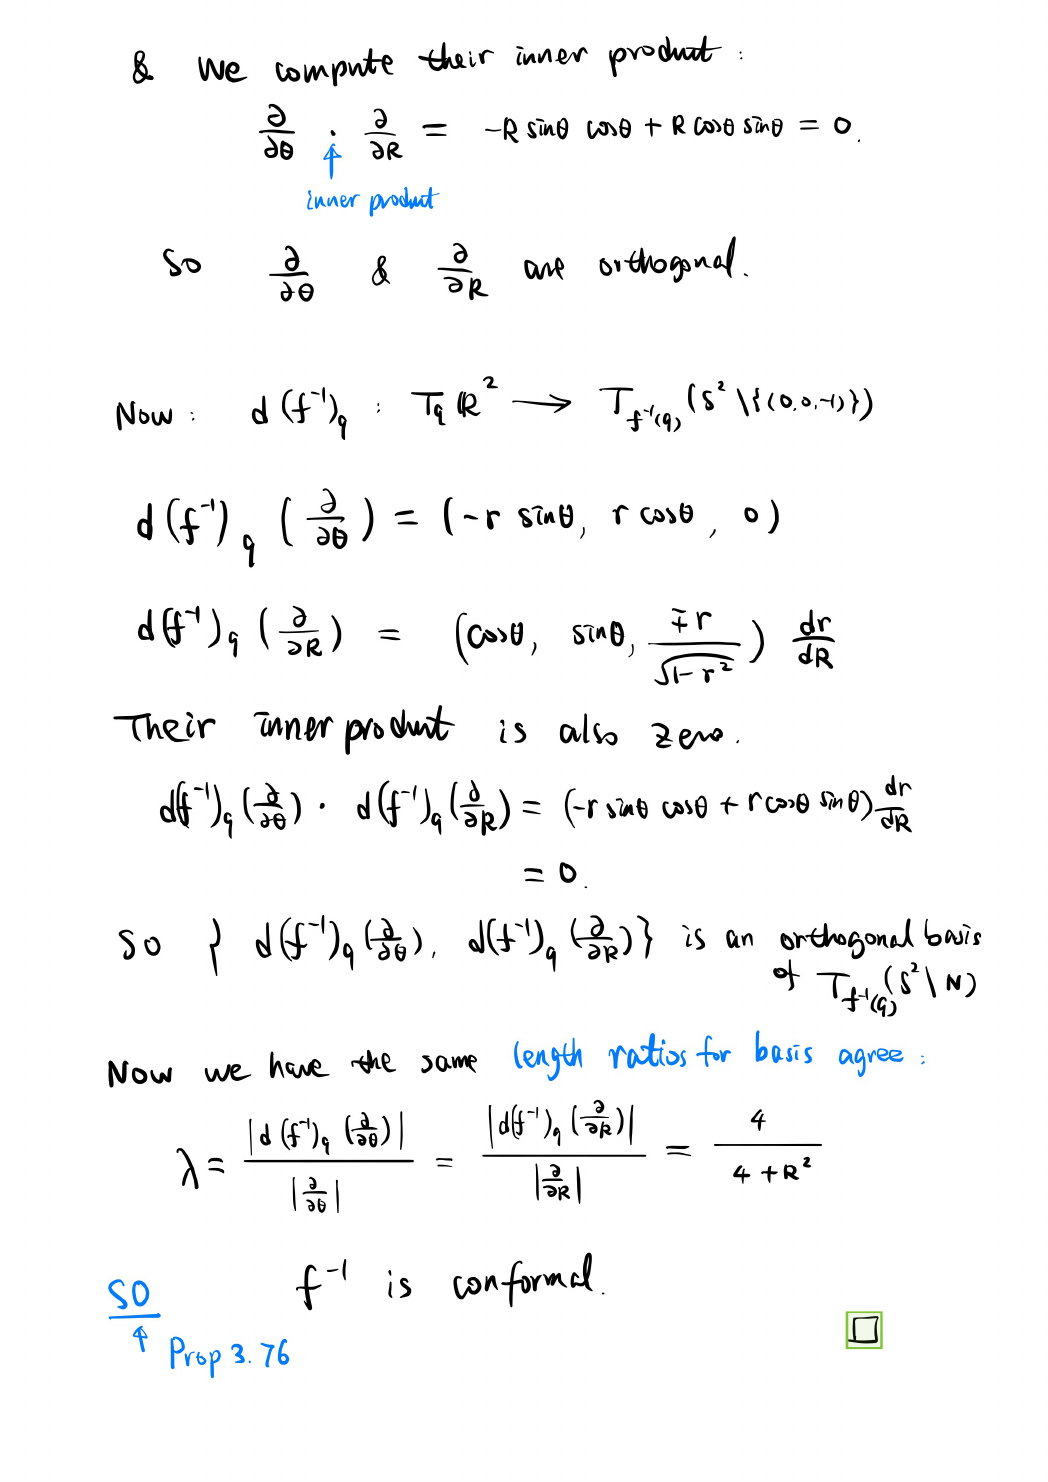 & we compute their inner product :
∂/∂θ · ∂/∂R = -R sinθ cosθ + R cosθ sinθ = 0.
↑
inner product
So ∂/∂θ & ∂/∂R are orthogonal.
Now : d(f⁻¹)_q : T_q ℝ² → T_{f⁻¹(q)} (S² \ {(0,0,-1)})
d(f⁻¹)_q (∂/∂θ) = (-r sinθ, r cosθ, 0)
d(f⁻¹)_q (∂/∂R) = (cosθ, sinθ, ∓r/√(1-r²)) dr/dR
Their inner product is also zero.
d(f⁻¹)_q (∂/∂θ) · d(f⁻¹)_q (∂/∂R) = (-r sinθ cosθ + r cosθ sinθ) dr/dR
= 0.
So { d(f⁻¹)_q (∂/∂θ), d(f⁻¹)_q (∂/∂R) } is an orthogonal basis
of T_{f⁻¹(q)} (S² \ N)
Now we have the same length ratios for basis agree :
λ = |d(f⁻¹)_q (∂/∂θ)| / |∂/∂θ| = |d(f⁻¹)_q (∂/∂R)| / |∂/∂R| = 4 / (4 + R²)
SO f⁻¹ is conformal.
↑ Prop 3.76
□